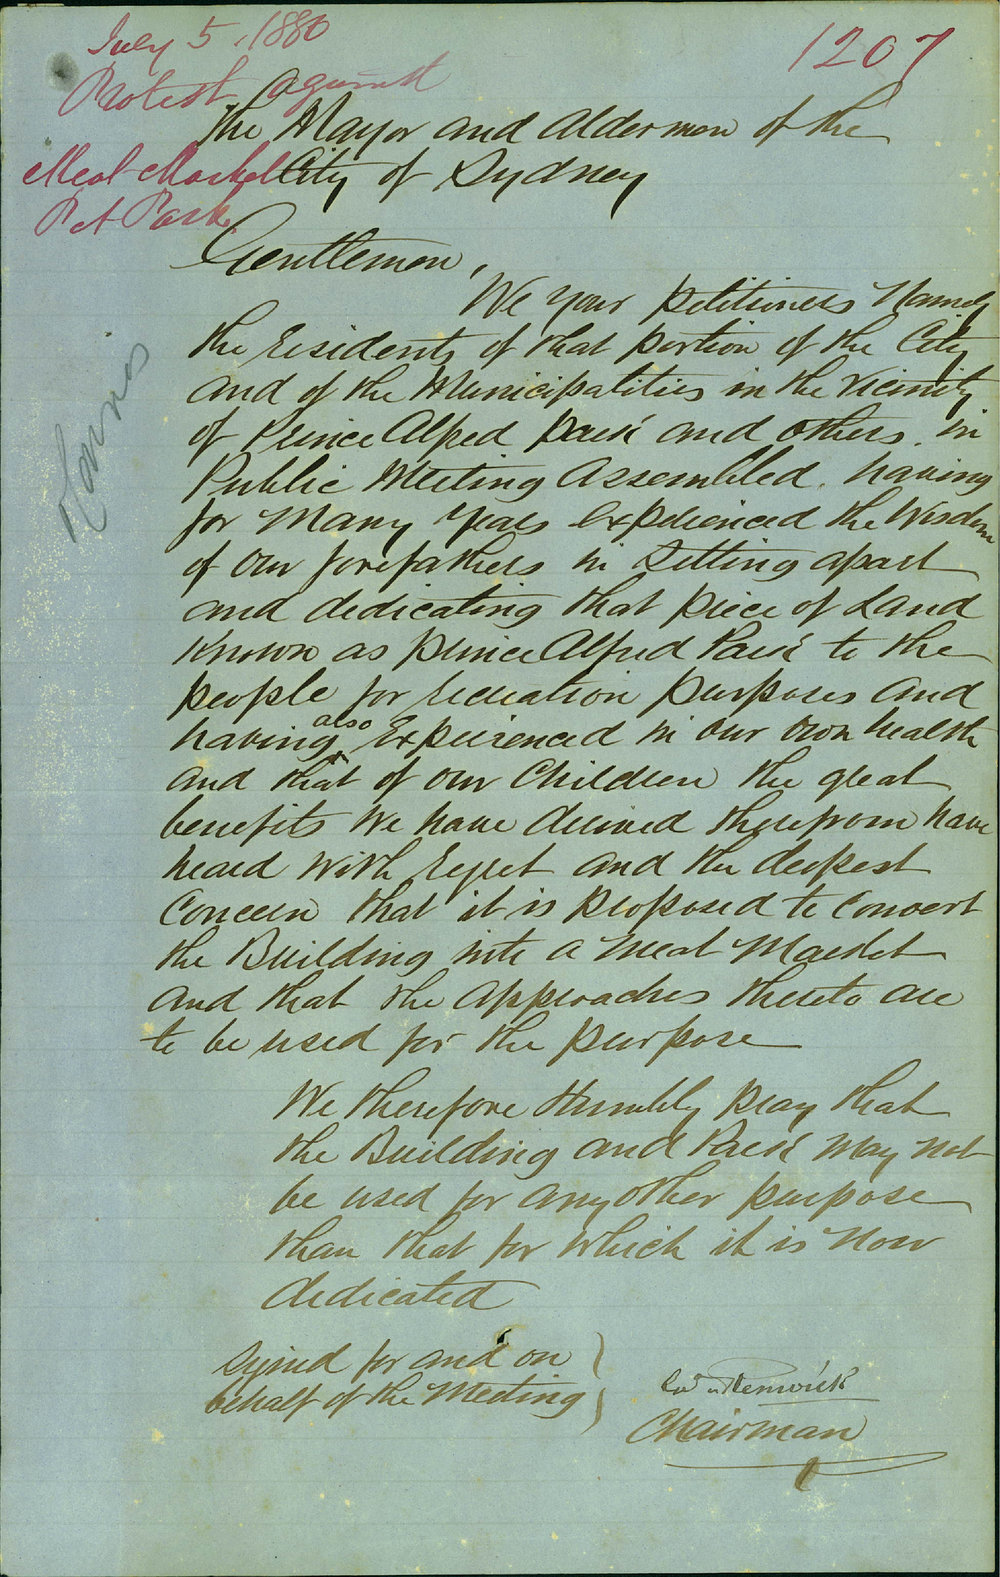 July 5, 1880
1207
Protest against
Meat Market
P A Park.
The Mayor and Aldermen of the
City of Sydney
Gentlemen,
We your petitioners Namely
the residents of that portion of the City
and of the Municipalities in the vicinity
of Prince Alfred Park and others. in
Public Meeting Assembled. having
for Many Years experienced the Wisdom
of our forefathers in Setting apart
and dedicating that piece of Land
Known as prince Alfred Park to the
people for recreation purposes and
having also Experienced in our own health
and that of our Children the great
benefits We have derived therefrom have
heard with regret and the deepest
Concern that it is proposed to Convert
the Building into a Meat Market
And that the Approaches thereto are
to be used for the purpose
We therefore Humbly pray that
the Building and Park May not
be used for any other purpose
than that for which it is Now
dedicated
Signed for and on
behalf of the Meeting
Renwick
Chairman